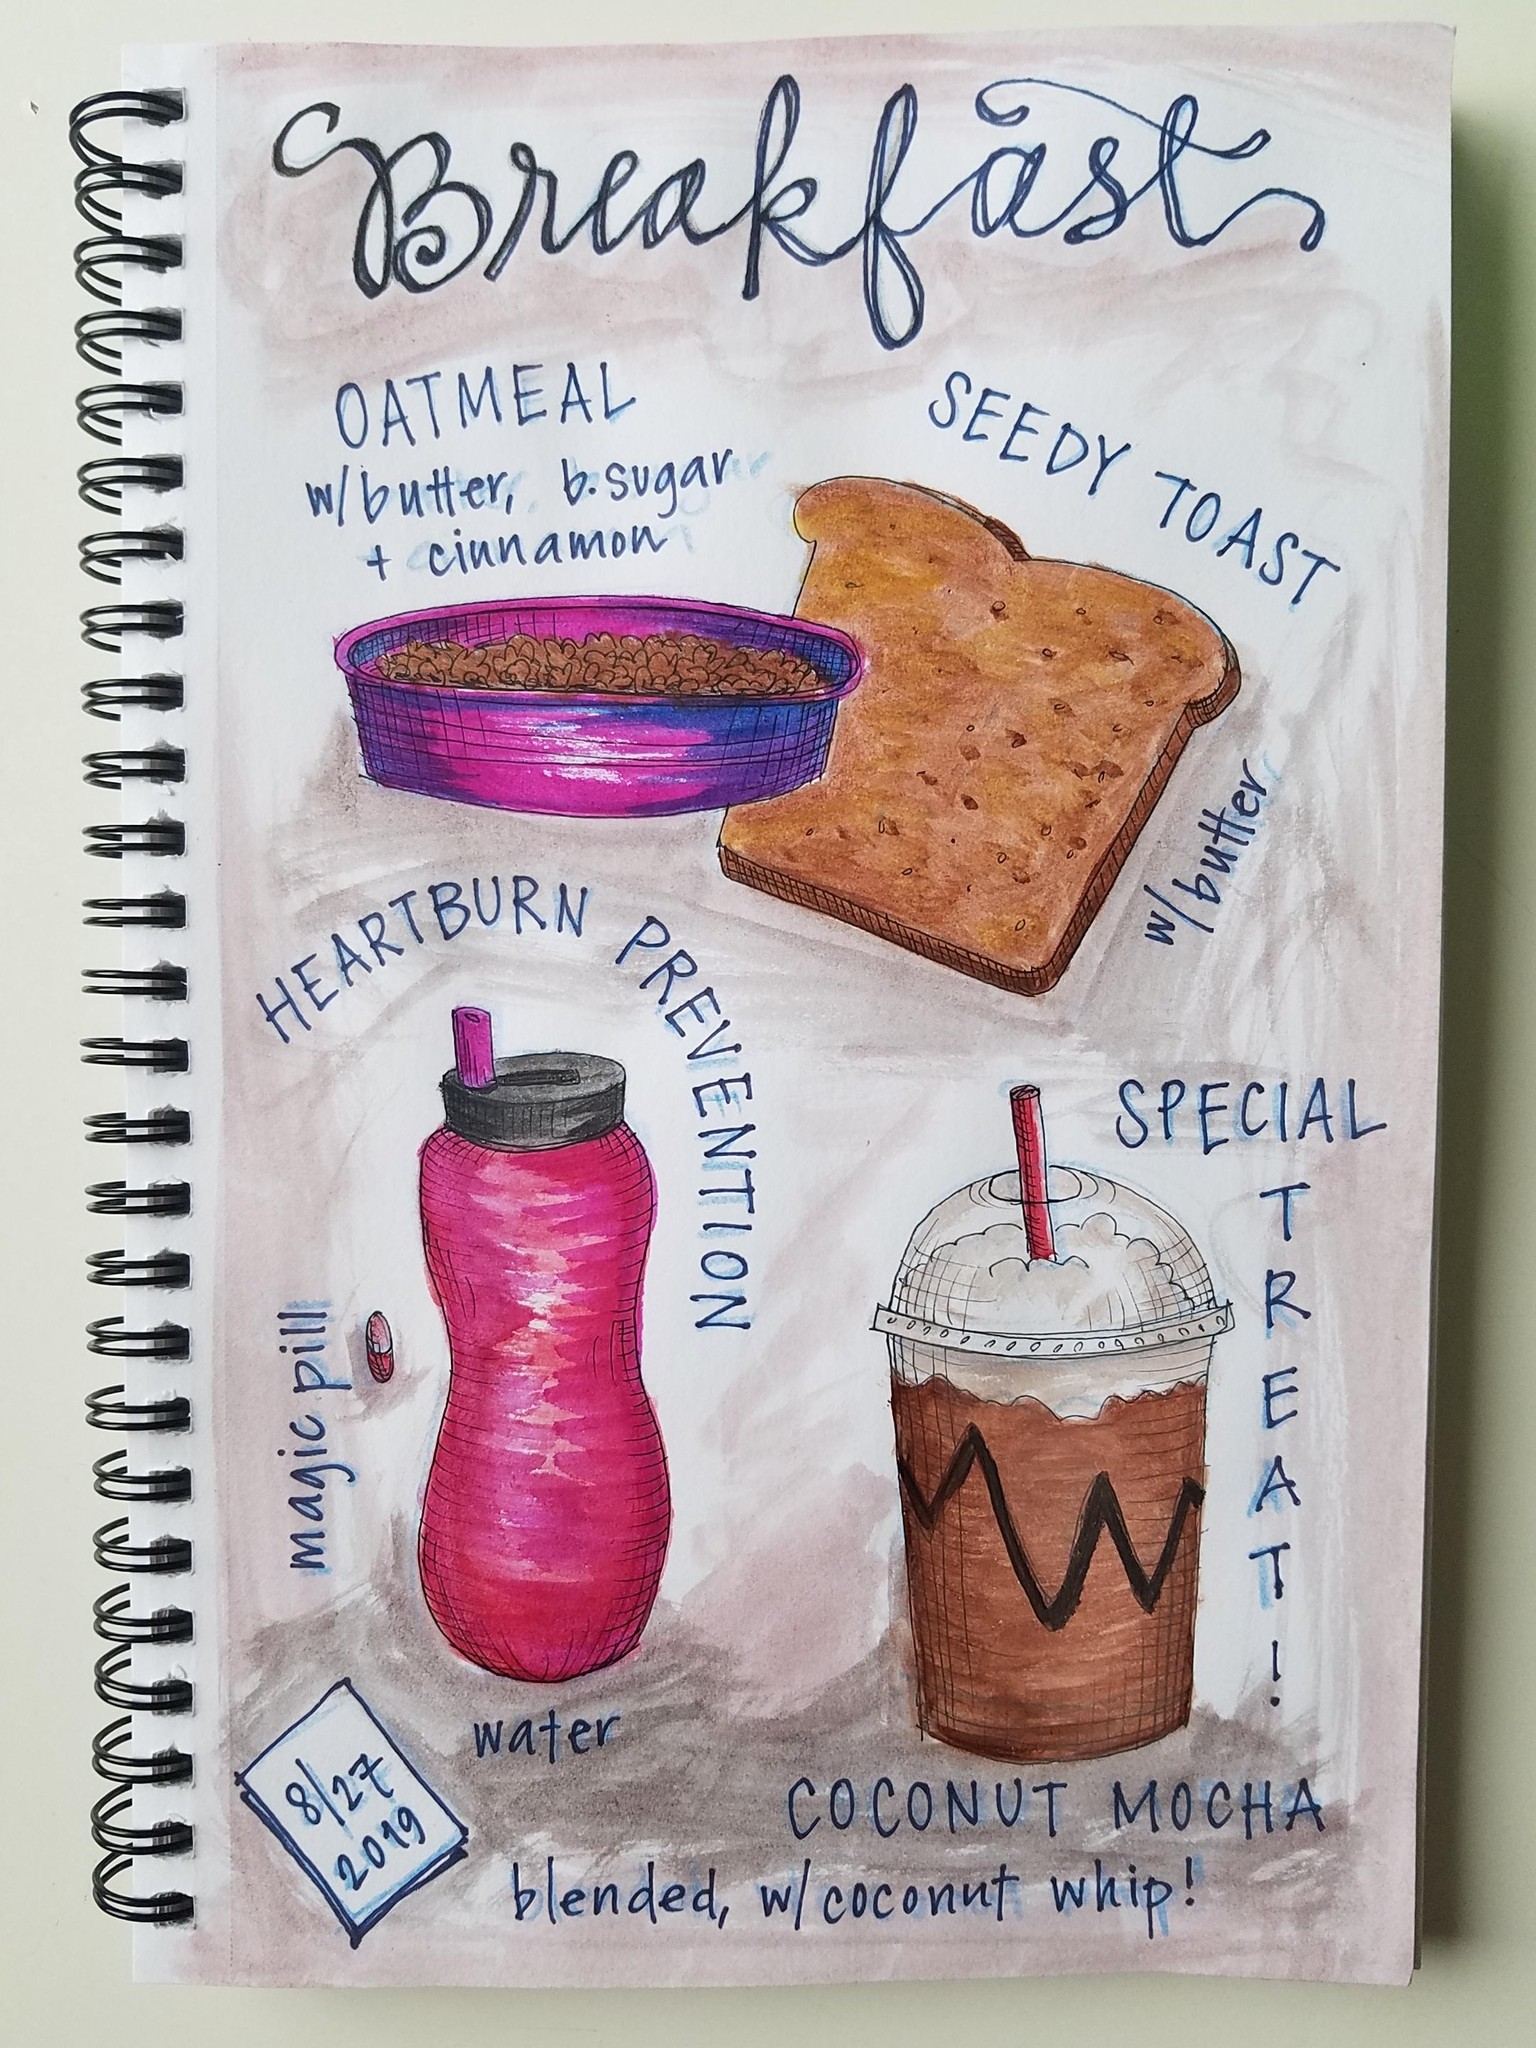 Breakfast
OATMEAL
w/butter, b.sugar
+ cinnamon
SEEDY TOAST
w/butter
HEARTBURN PREVENTION
magic pill
water
SPECIAL
TREAT!
COCONUT MOCHA
blended, w/coconut whip!
8/27
2019